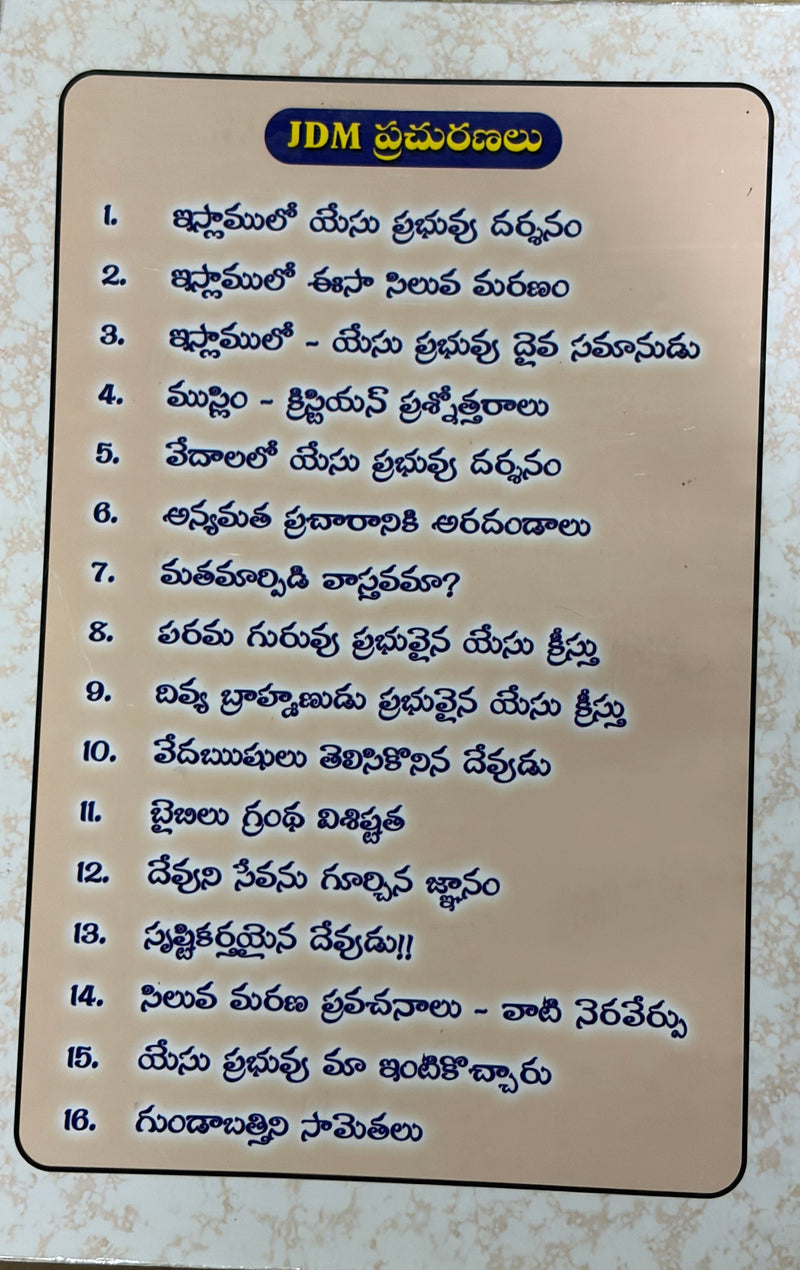 JDM ప్రచురణలు
1. ఇస్లాములో యేసు ప్రభువు దర్శనం
2. ఇస్లాములో ఈసా సిలువ మరణం
3. ఇస్లాములో - యేసు ప్రభువు దైవ సమానుడు
4. ముస్లిం - క్రిస్టియన్ ప్రశ్నోత్తరాలు
5. వేదాలలో యేసు ప్రభువు దర్శనం
6. అన్యమత ప్రచారానికి అరదండాలు
7. మతమార్పిడి వాస్తవమా?
8. పరమ గురువు ప్రభువైన యేసు క్రీస్తు
9. దివ్య బ్రాహ్మణుడు ప్రభువైన యేసు క్రీస్తు
10. వేదఋషులు తెలిసికొనిన దేవుడు
11. బైబిలు గ్రంథ విశిష్టత
12. దేవుని సేవను గూర్చిన జ్ఞానం
13. సృష్టికర్తయైన దేవుడు!!
14. సిలువ మరణ ప్రవచనాలు - వాటి నెరవేర్పు
15. యేసు ప్రభువు మా ఇంటికొచ్చారు
16. గుండాబత్తిని సామెతలు